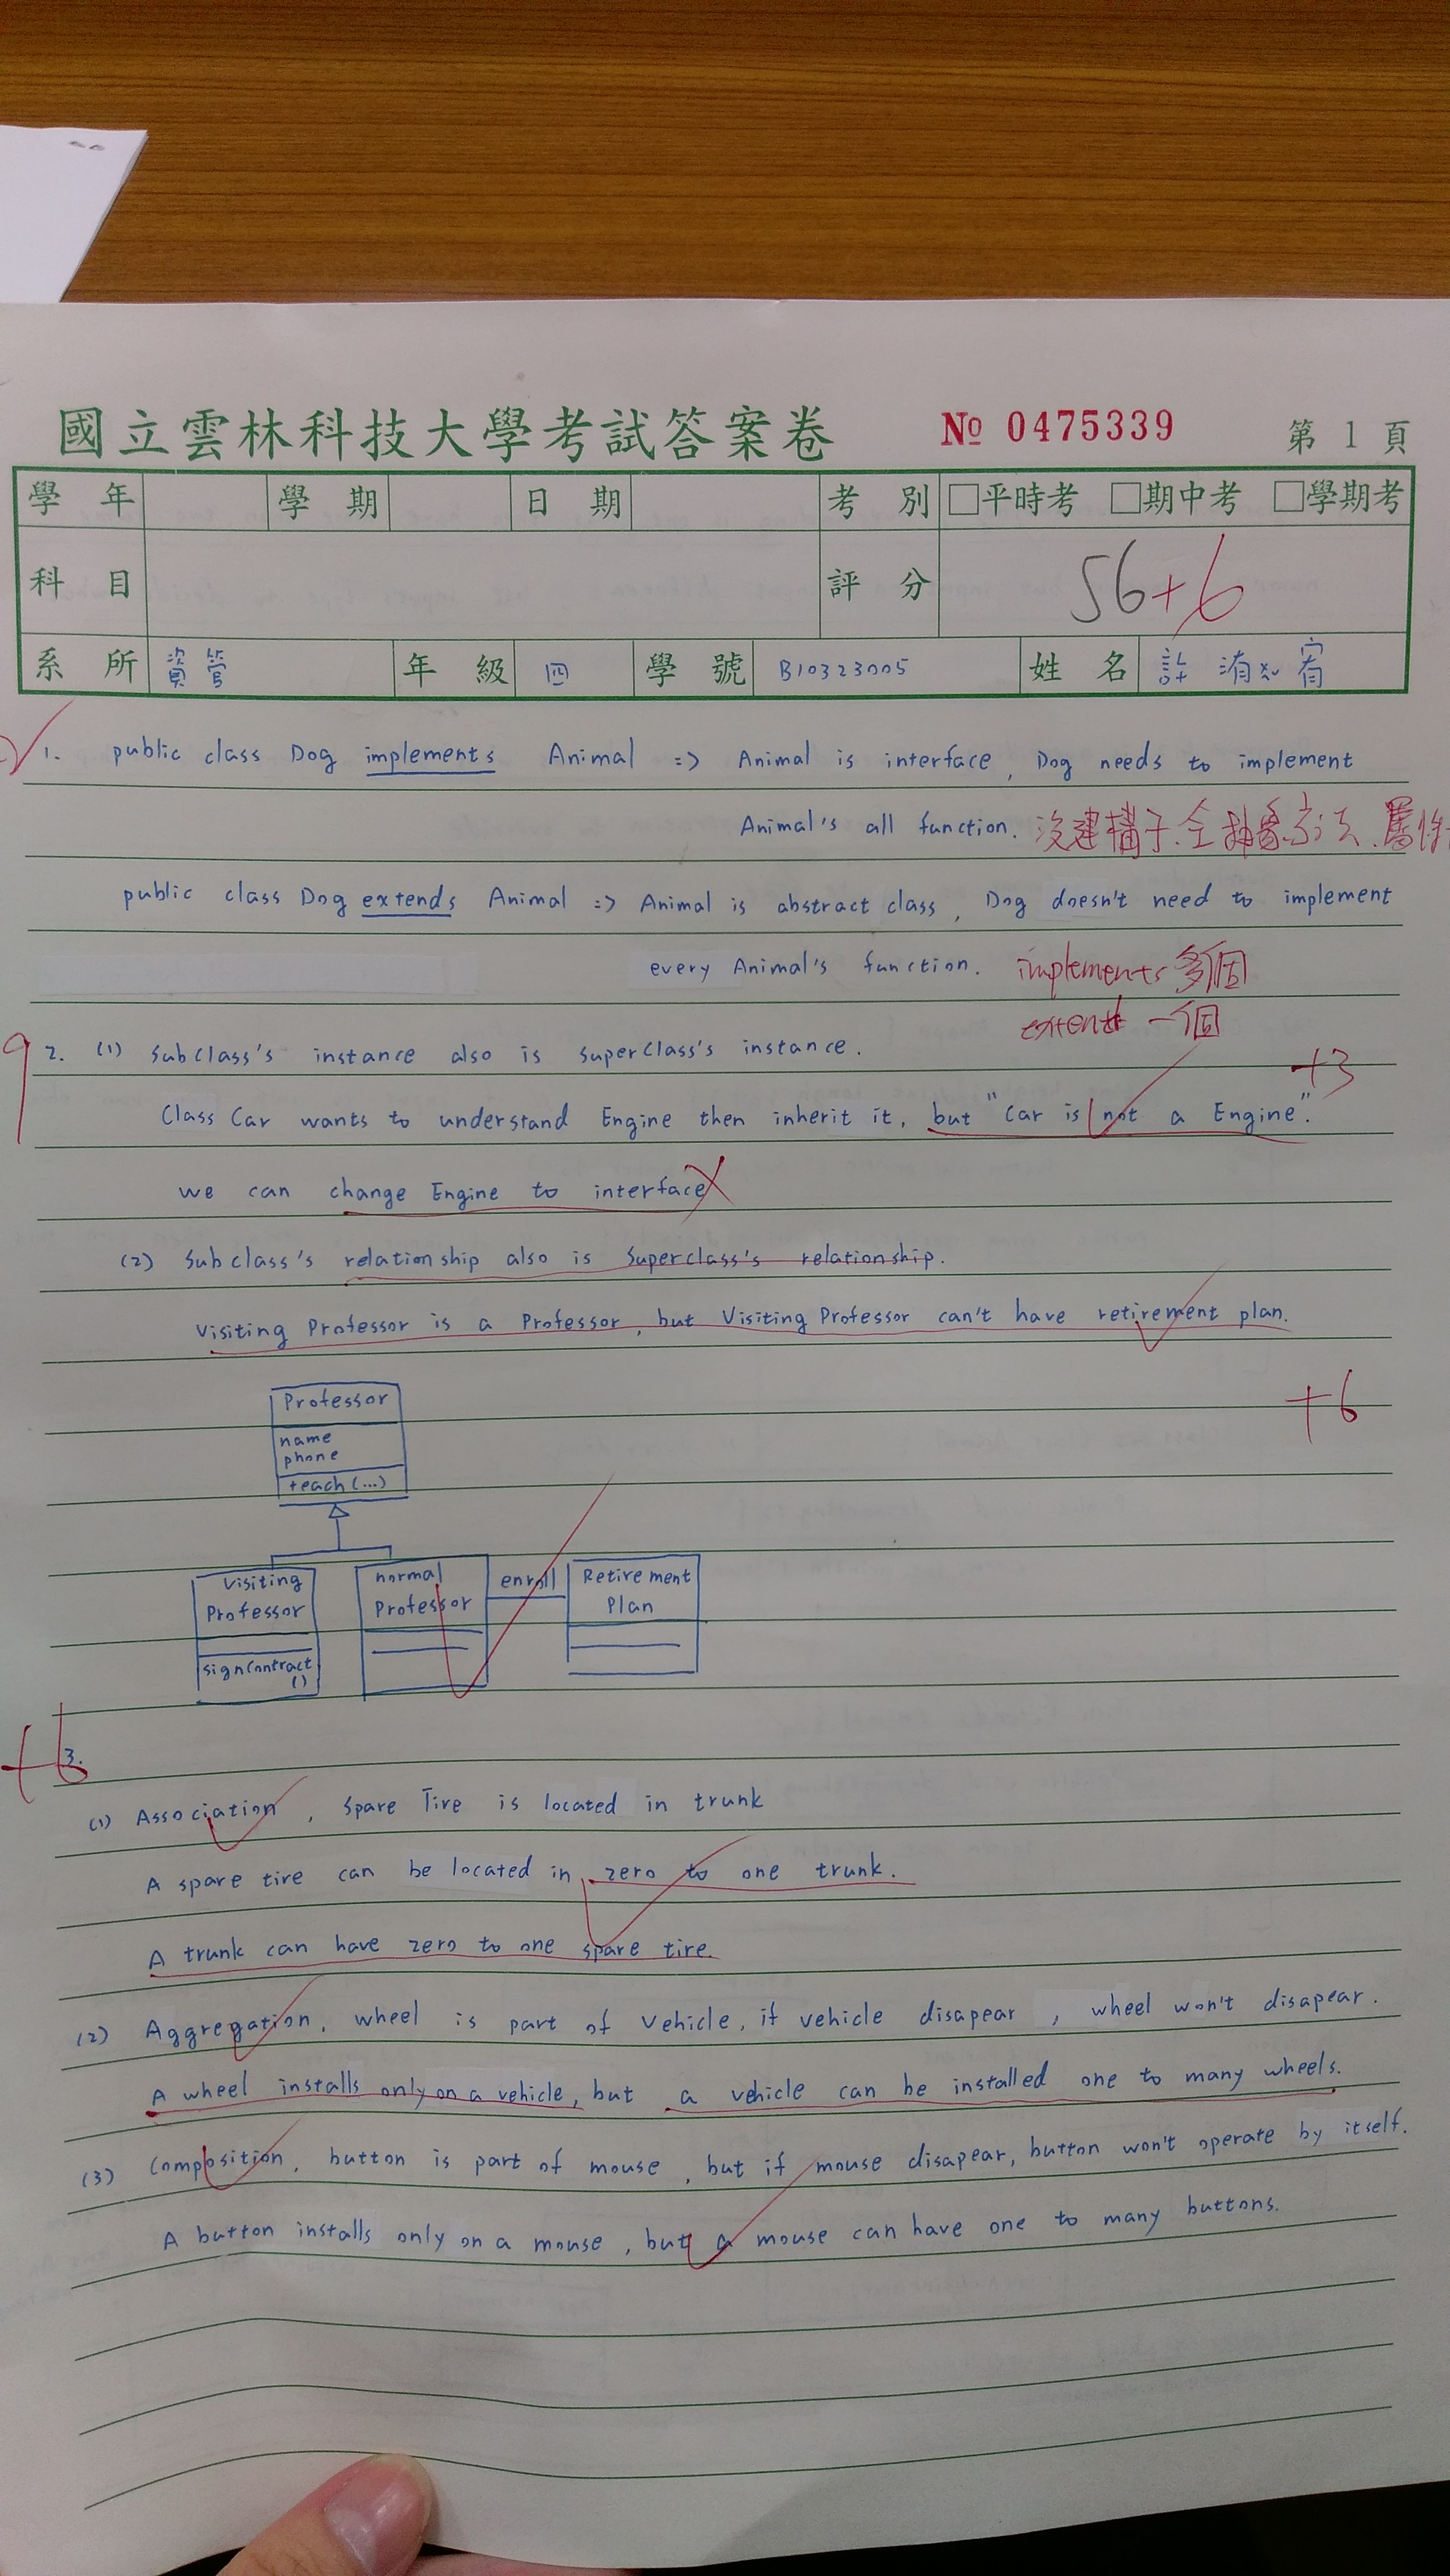 國立雲林科技大學考試答案卷 № 0475339 第 1 頁
學年 學期 日期 考別 □平時考 □期中考 □學期考
科目 評分 56+6
系所 資管 年級 四 學號 B10323005 姓名 許
1. public class Dog implements Animal => Animal is interface, Dog needs to implement
Animal's all function. 沒建構子.全抽象方法.屬性
public class Dog extends Animal => Animal is abstract class, Dog doesn't need to implement
every Animal's function. implements 多個
extends 一個
9 2. (1) Subclass's instance also is superclass's instance. +3
Class Car wants to understand Engine then inherit it, but "Car is not a Engine".
we can change Engine to interface
(2) Subclass's relationship also is Superclass's relationship.
Visiting Professor is a Professor, but Visiting Professor can't have retirement plan.
+6
Professor
name
phone
teach(...)
Visiting Professor
signContract()
normal Professor
enroll
Retirement Plan
+6 3.
(1) Association, Spare Tire is located in trunk
A spare tire can be located in zero to one trunk.
A trunk can have zero to one spare tire.
(2) Aggregation, wheel is part of vehicle, if vehicle disapear, wheel won't disapear.
A wheel installs only on a vehicle, but a vehicle can be installed one to many wheels.
(3) Composition, button is part of mouse, but if mouse disapear, button won't operate by itself.
A button installs only on a mouse, but a mouse can have one to many buttons.